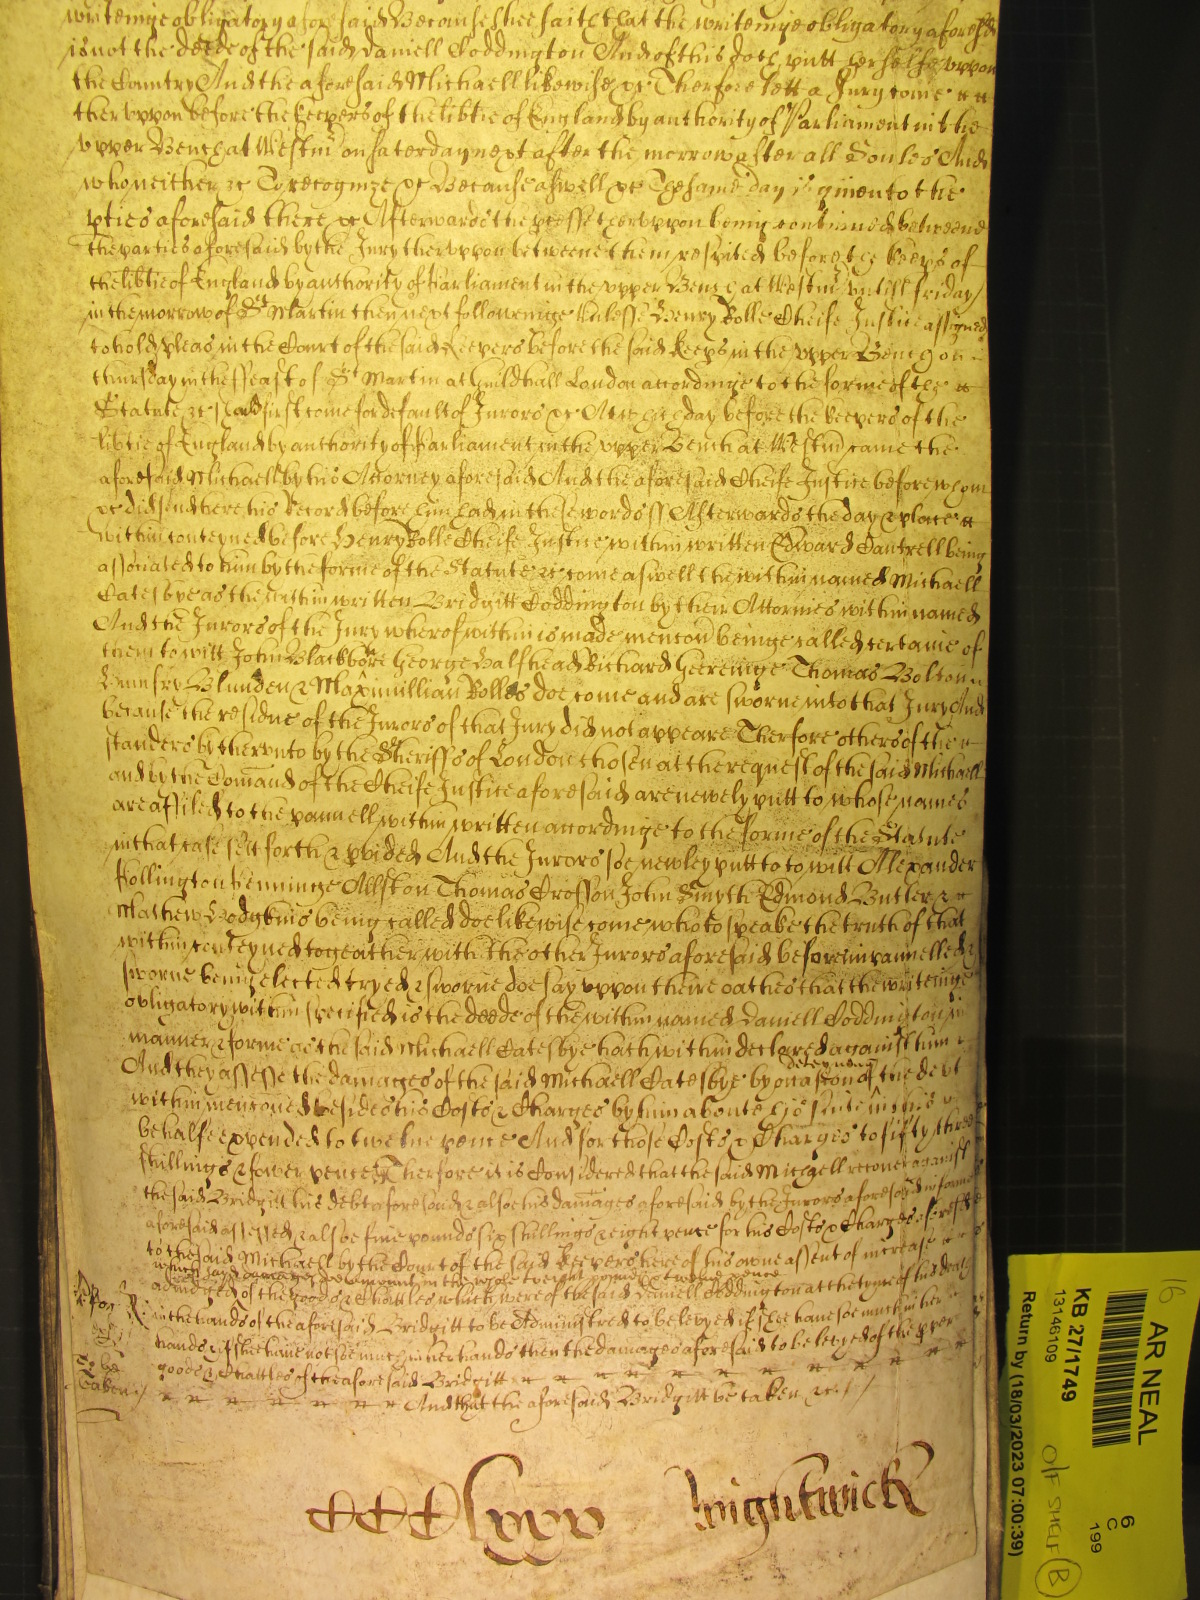 writeinge obligatory aforesaid Because shee saith that the writeinge obligatory aforesd
is not the deede of the said Daniell Coddington And of this doth putt her selfe vppon
the Country And the aforesaid Michaell likewise &c Therfore lett a Jury come
thervppon before the keepers of the libtie of England by authority of Parliament in the
vpper Bench at Westm on Saterday next after the morrow after all Soules And
who neither &c To recognize &c Because aswell &c The same day is given to the
pties aforesaid there &c Afterwards the pcesse thervppon being continued betweene
the parties aforesaid by the Jury thervppon betweene them respited before the keeps of
the libtie of England by authority of Parliament in the vpper Bench at Westm vntill friday
in the morrow of St Martin then next followeinge Vnlesse Henry Rolle Cheife Justice assigned
to hold pleas in the Court of the said keepers before the said keeps in the vpper Bench on
thursday in the feast of St Martin at Guildhall London accordinge to the forme of the
Statute &c shall first come for default of Jurors &c Att which day before the keepers of the
libtie of England by authority of Parliament in the vpper Bench at Westm came the
aforesaid Michaell by his Attorney aforesaid And the aforesaid Cheife Justice before whom
&c did send here his Record before him had in these words ss Afterwards the day & place
within conteyned before Henry Rolle Cheife Justice within written Edward Cantrell being
associated to him by the forme of the Statute &c come aswell the within named Michaell
Catesbye as the within written Bridgitt Coddington by their Attornies within named
And the Jurors of the Jury wherof within is made mencon beinge called certaine of
them to witt John Blackbore George Halfhead Richard Heereinge Thomas Bolton
Humfry Blunden & Maximillian Bolles doe come and are sworne into that Jury And
because the residue of the Jurors of that Jury did not appeare Therfore others of the
standers by thervnto by the Sheriffs of London chosen at the request of the said Michaell
and by the Comand of the Cheife Justice aforesaid are newely putt to whose names
are affiled to the pannell within written accordinge to the forme of the Statute
in that case sett forth & pvided And the Jurors soe newley putt to to witt Allexander
Pollington Henninge Allston Thomas Crosson John Smyth Edmond Butler &
Mathew Hodgkins being called doe likewise come who to speake the truth of that
within conteyned togeather with the other Jurors aforesaid before impannelled &
sworne being elected tryed & sworne doe say vppon theire oathes that the writeinge
obligatory within specified is the deede of the within named Daniell Coddington in
manner & forme as the said Michaell Catesbye hath within declared against him
And they assesse the damages of the said Michaell Catesbye by occasion of the deteyning of the debt
within mencond besides his Costs & Charges by him aboute his suite in this
behalfe expended to twelve pence And for those Costs & Charges to fifty three
shillings & fower pence Therfore it is Considered that the said Michaell recover against
the said Bridgitt his debt aforesaid & alsoe his damages aforesaid by the Jurors aforesaid in forme
aforesaid assessed & alsoe five pounds six shillings & eight pence for his Costs & Charges aforesd
to the said Michaell by the Court of the said keepers here of his owne assent of increase
which said damages doe amount in the whole to eight pounds & twelve pence
adiudged of the goods & Chattles which were of the said Daniell Coddington at the tyme of his death
in the hands of the aforesaid Bridgitt to be Administred to be levyed if shee have soe much in her
hands & if she have not soe much in her hands then the damages aforesaid to be levyed of the pper
goods & Chattles of the aforesaid Bridgitt
And that the aforesaid Bridgitt be taken &c
be
taken
CCClxxv Wightwick
16
AR NEAL
KB 27/1749
13146109
Return by (18/03/2023 07:00:39)
6
C
199
O/F SHELF B